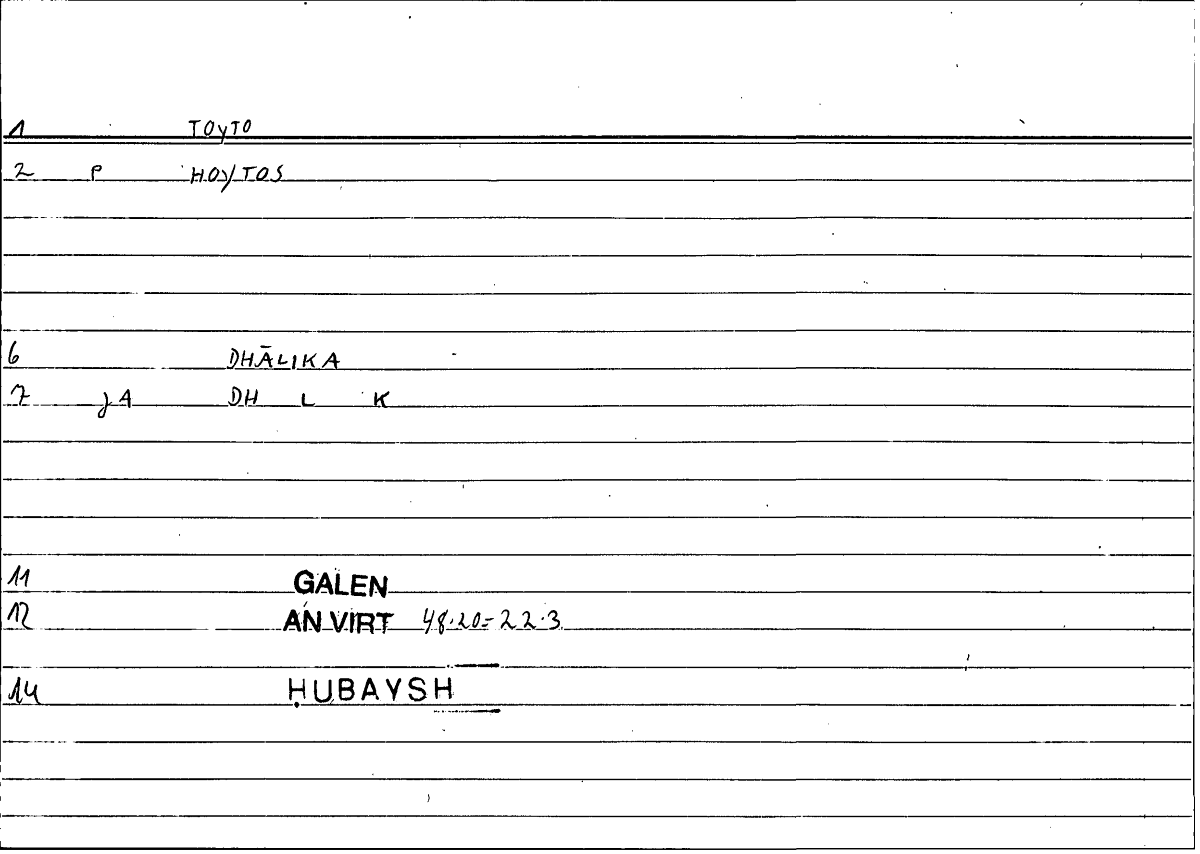 1 TOYTO
2 P HOYTOS
6 DHĀLIKA
7 JA DH L K
11 GALEN
12 AN VIRT 48.20=22.3
14 ḤUBAYSH